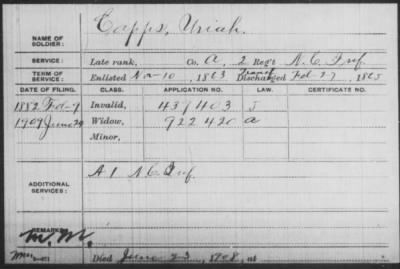 NAME OF SOLDIER: Capps, Uriah.
SERVICE: Late rank, Co. A, 2 Reg't N.C. Inf.
TERM OF SERVICE: Enlisted Nov-10, 1863 Transf. Discharged Feb-27, 1865
DATE OF FILING. CLASS. APPLICATION NO. LAW. CERTIFICATE NO.
1882 Feb-9 Invalid, 439403 J
1909 June 29 Widow, 922420 a
Minor,
ADDITIONAL SERVICES: A 1 N.C. Inf.
REMARKS:
W.M.
Died June 23, 1908, at